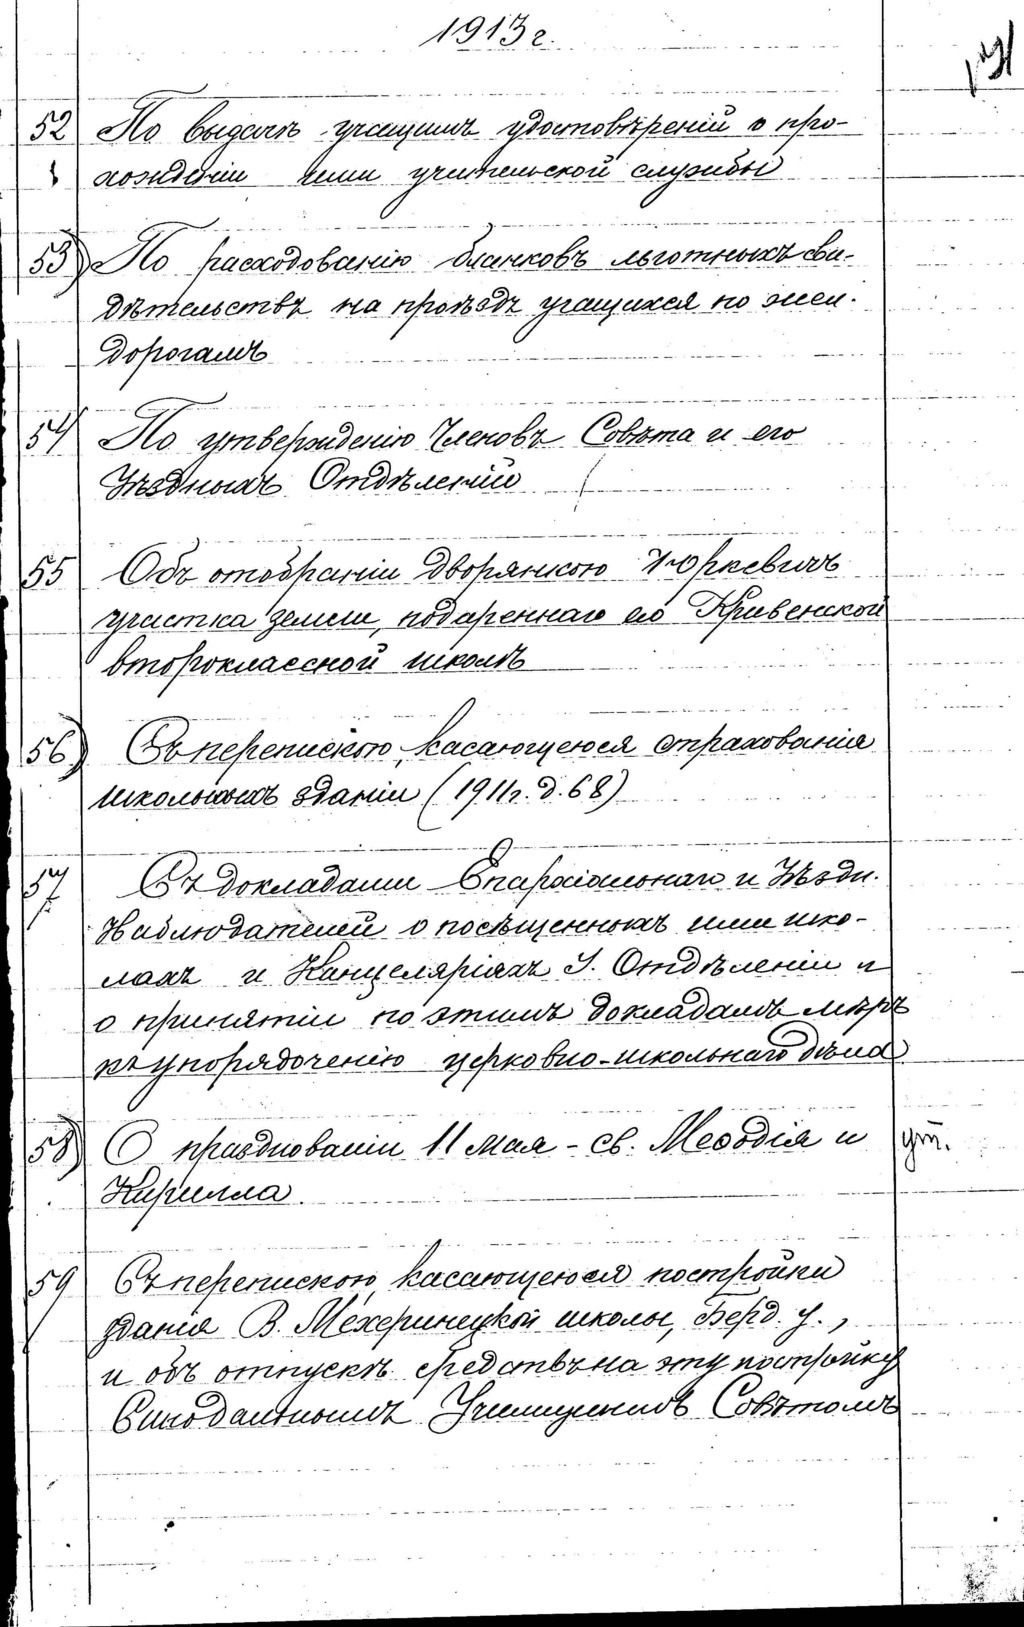 1913 г.
52 По выдачѣ учащимъ удостовѣреній о про-
хожденіи ими учительской службы
53) По расходованію бланковъ льготныхъ сви-
дѣтельствъ на проѣздъ учащихся по жел.
дорогамъ
54 По утвержденію Членовъ Совѣта и его
Уѣздныхъ Отдѣленій
55 Объ отобраніи дворянкою Юркевичъ
участка земли, подареннаго ею Кривенской
второклассной школѣ
56) Съ перепискою, касающеюся страхованія
школьныхъ зданій (1911г. д. 68)
57 Съ докладами Епархіальнаго и Уѣздн.
Наблюдателей о посѣщенныхъ ими шко-
лахъ и Канцеляріяхъ У. Отдѣленій и
о принятіи по этимъ докладамъ мѣръ
къ упорядоченію церковно-школьнаго дѣла
58) О празднованіи 11 Мая - св. Меѳодія и ут.
Кирилла.
59 Съ перепискою, касающеюся постройки
зданія В. Мехеринецкой школы, Берд. у.,
и объ отпускѣ средствъ на эту постройку
Синодальнымъ Училищнымъ Совѣтомъ